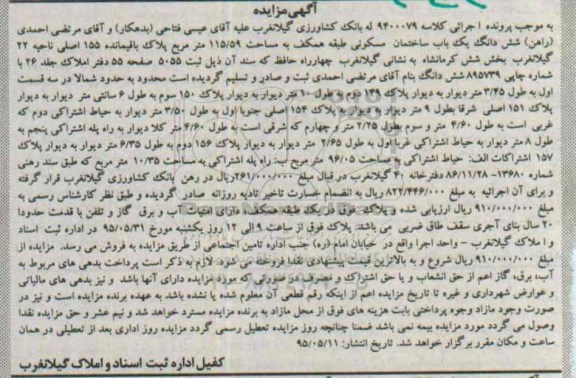 آگهی مزایده
به موجب پرونده اجرائی کلاسه ۹۴۰۰۰۷۹ له بانک کشاورزی گیلانغرب علیه آقای عیسی فتاحی (بدهکار) و آقای مرتضی احمدی
(راهن) شش دانگ یک باب ساختمان مسکونی طبقه همکف به مساحت ۱۱۵/۵۹ متر مربع پلاک باقیمانده ۱۵۵ اصلی ناحیه ۲۲
گیلانغرب بخش شش کرمانشاه به نشانی گیلانغرب چهارراه حافظ که سند آن ذیل ثبت ۵۰۵۵ صفحه ۵۵ دفتر املاک جلد ۲۶ با
شماره چاپی ۸۹۵۷۳۹ شش دانگ بنام آقای مرتضی احمدی ثبت و صادر و تسلیم گردیده است محدود به حدود شمالا در سه قسمت
اول به طول ۳/۴۵ متر دیوار به دیوار پلاک ۱۴۹ دوم به طول ۱۰ متر دیوار به دیوار پلاک ۱۵۰ سوم به طول ۶ سانتی متر دیوار به دیوار
پلاک ۱۵۱ اصلی شرقا بطول ۹ متر دیوار به دیوار پلاک ۱۵۴ اصلی جنوبا اول به طول ۳/۵۰ متر دیوار به حیاط اشتراکی دوم که
غربی است به طول ۴/۶۰ متر و سوم بطول ۲/۲۵ متر و چهارم که شرقی است به طول ۴/۶۰ متر کلا دیوار به راه پله اشتراکی پنجم به
طول ۸ متر دیوار به حیاط اشتراکی غربا اول به طول ۲/۶۵ متر دیوار به دیوار پلاک ۱۵۶ دوم به طول ۶/۳۵ متر دیوار به دیوار پلاک
۱۵۷ اشتراکات الف: حیاط اشتراکی به مساحت ۹۶/۰۵ متر مربع ب: راه پله اشتراکی به مساحت ۱۰/۳۵ متر مربع که طبق سند رهنی
شماره ۱۳۶۸۰- ۸۶/۱۱/۲۸ دفترخانه ۴۰ گیلانغرب در قبال مبلغ ۲۶۱/۰۰۰/۰۰۰ ریال در رهن بانک کشاورزی گیلانغرب قرار گرفته
و برای آن اجرائیه به مبلغ ۸۲۲/۴۴۶/۰۰۰ ریال به انضمام خسارت تاخیر تادیه روزانه صادر گردیده و طبق نظر کارشناس رسمی به
مبلغ ۹۱۰/۰۰۰/۰۰۰ ریال ارزیابی شده و پلاک فوق در یک طبقه همکف، دارای امتیاز آب و برق گاز و تلفن با قدمت حدودا
۲۰ سال بنای آجری سقف طاق ضربی می باشد پلاک فوق از ساعت ۹ الی ۱۲ روز یکشنبه مورخ ۹۵/۰۵/۳۱ در اداره ثبت اسناد
و املاک گیلانغرب - واحد اجرا واقع در خیابان امام (ره) جنب اداره تامین اجتماعی از طریق مزایده به فروش می رسد. مزایده از
مبلغ ۹۱۰/۰۰۰/۰۰۰ ریال شروع و به بالاترین قیمت پیشنهادی نقدا فروخته می شود. لازم به ذکر است پرداخت بدهی های مربوط به
آب، برق، گاز اعم از حق انشعاب و یا حق اشتراک و مصرف در صورتی که مورد مزایده دارای آنها باشد و نیز بدهی های مالیاتی
و عوارض شهرداری و غیره تا تاریخ مزایده اعم از اینکه رقم قطعی آن معلوم شده یا نشده باشد به عهده برنده مزایده است و نیز در
صورت وجود مازاد وجوه پرداختی بابت هزینه های فوق از محل مازاد به برنده مزایده مسترد خواهد شد و نیم عشر و حق مزایده نقدا
وصول می گردد مورد مزایده بیمه نمی باشد ضمنا چنانچه روز مزایده تعطیل رسمی گردد مزایده روز اداری بعد از تعطیلی در همان
ساعت و مکان مقرر برگزار خواهد شد. تاریخ انتشار: ۹۵/۰۵/۱۱
کفیل اداره ثبت اسناد و املاک گیلانغرب